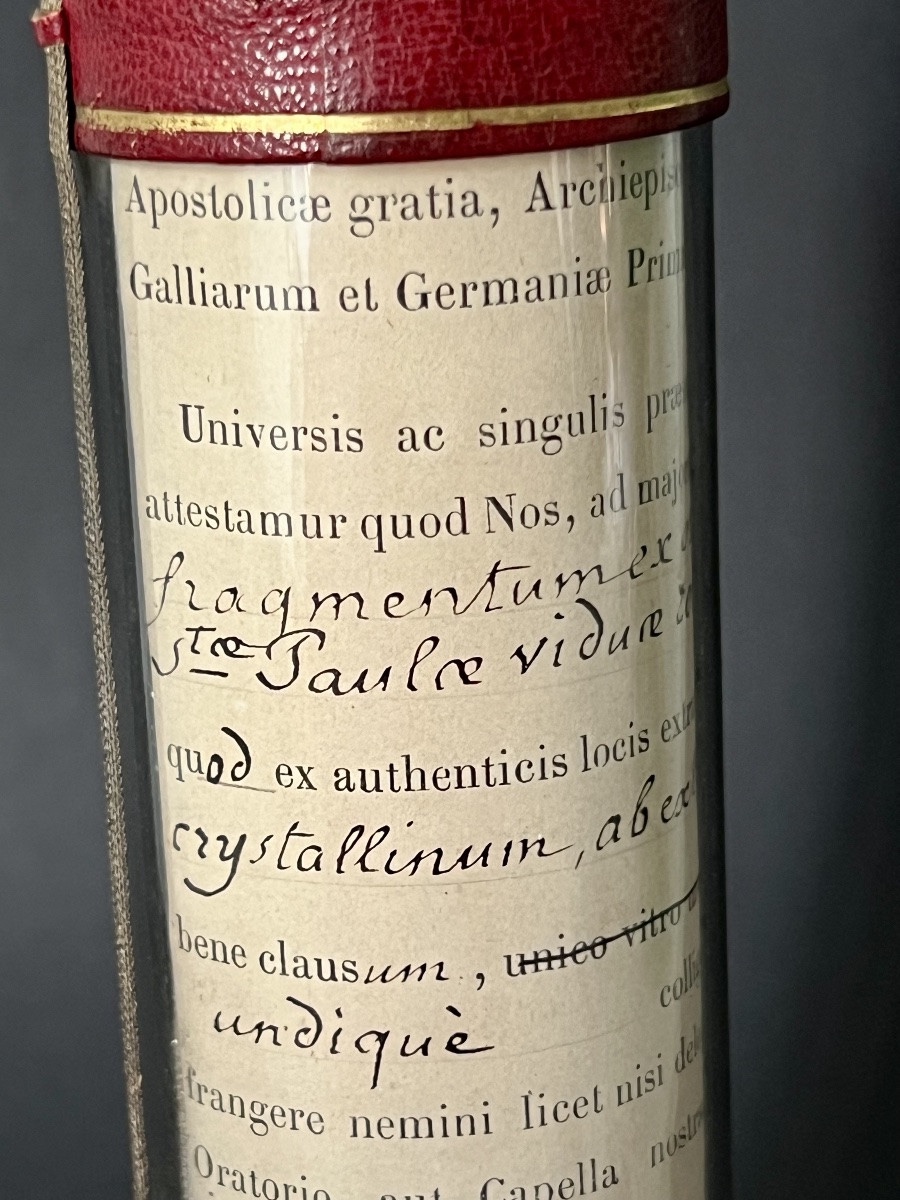 Apostolicæ gratia, Archiepis
Galliarum et Germaniæ Prim
Universis ac singulis præ
attestamur quod Nos, ad maj
fragmentum ex
Stæ Paulæ viduæ
quod ex authenticis locis extr
crystallinum, ab ex
bene clausum, unico vitro
colli
undiquè
frangere nemini licet nisi de
Oratorio aut Capella nostr